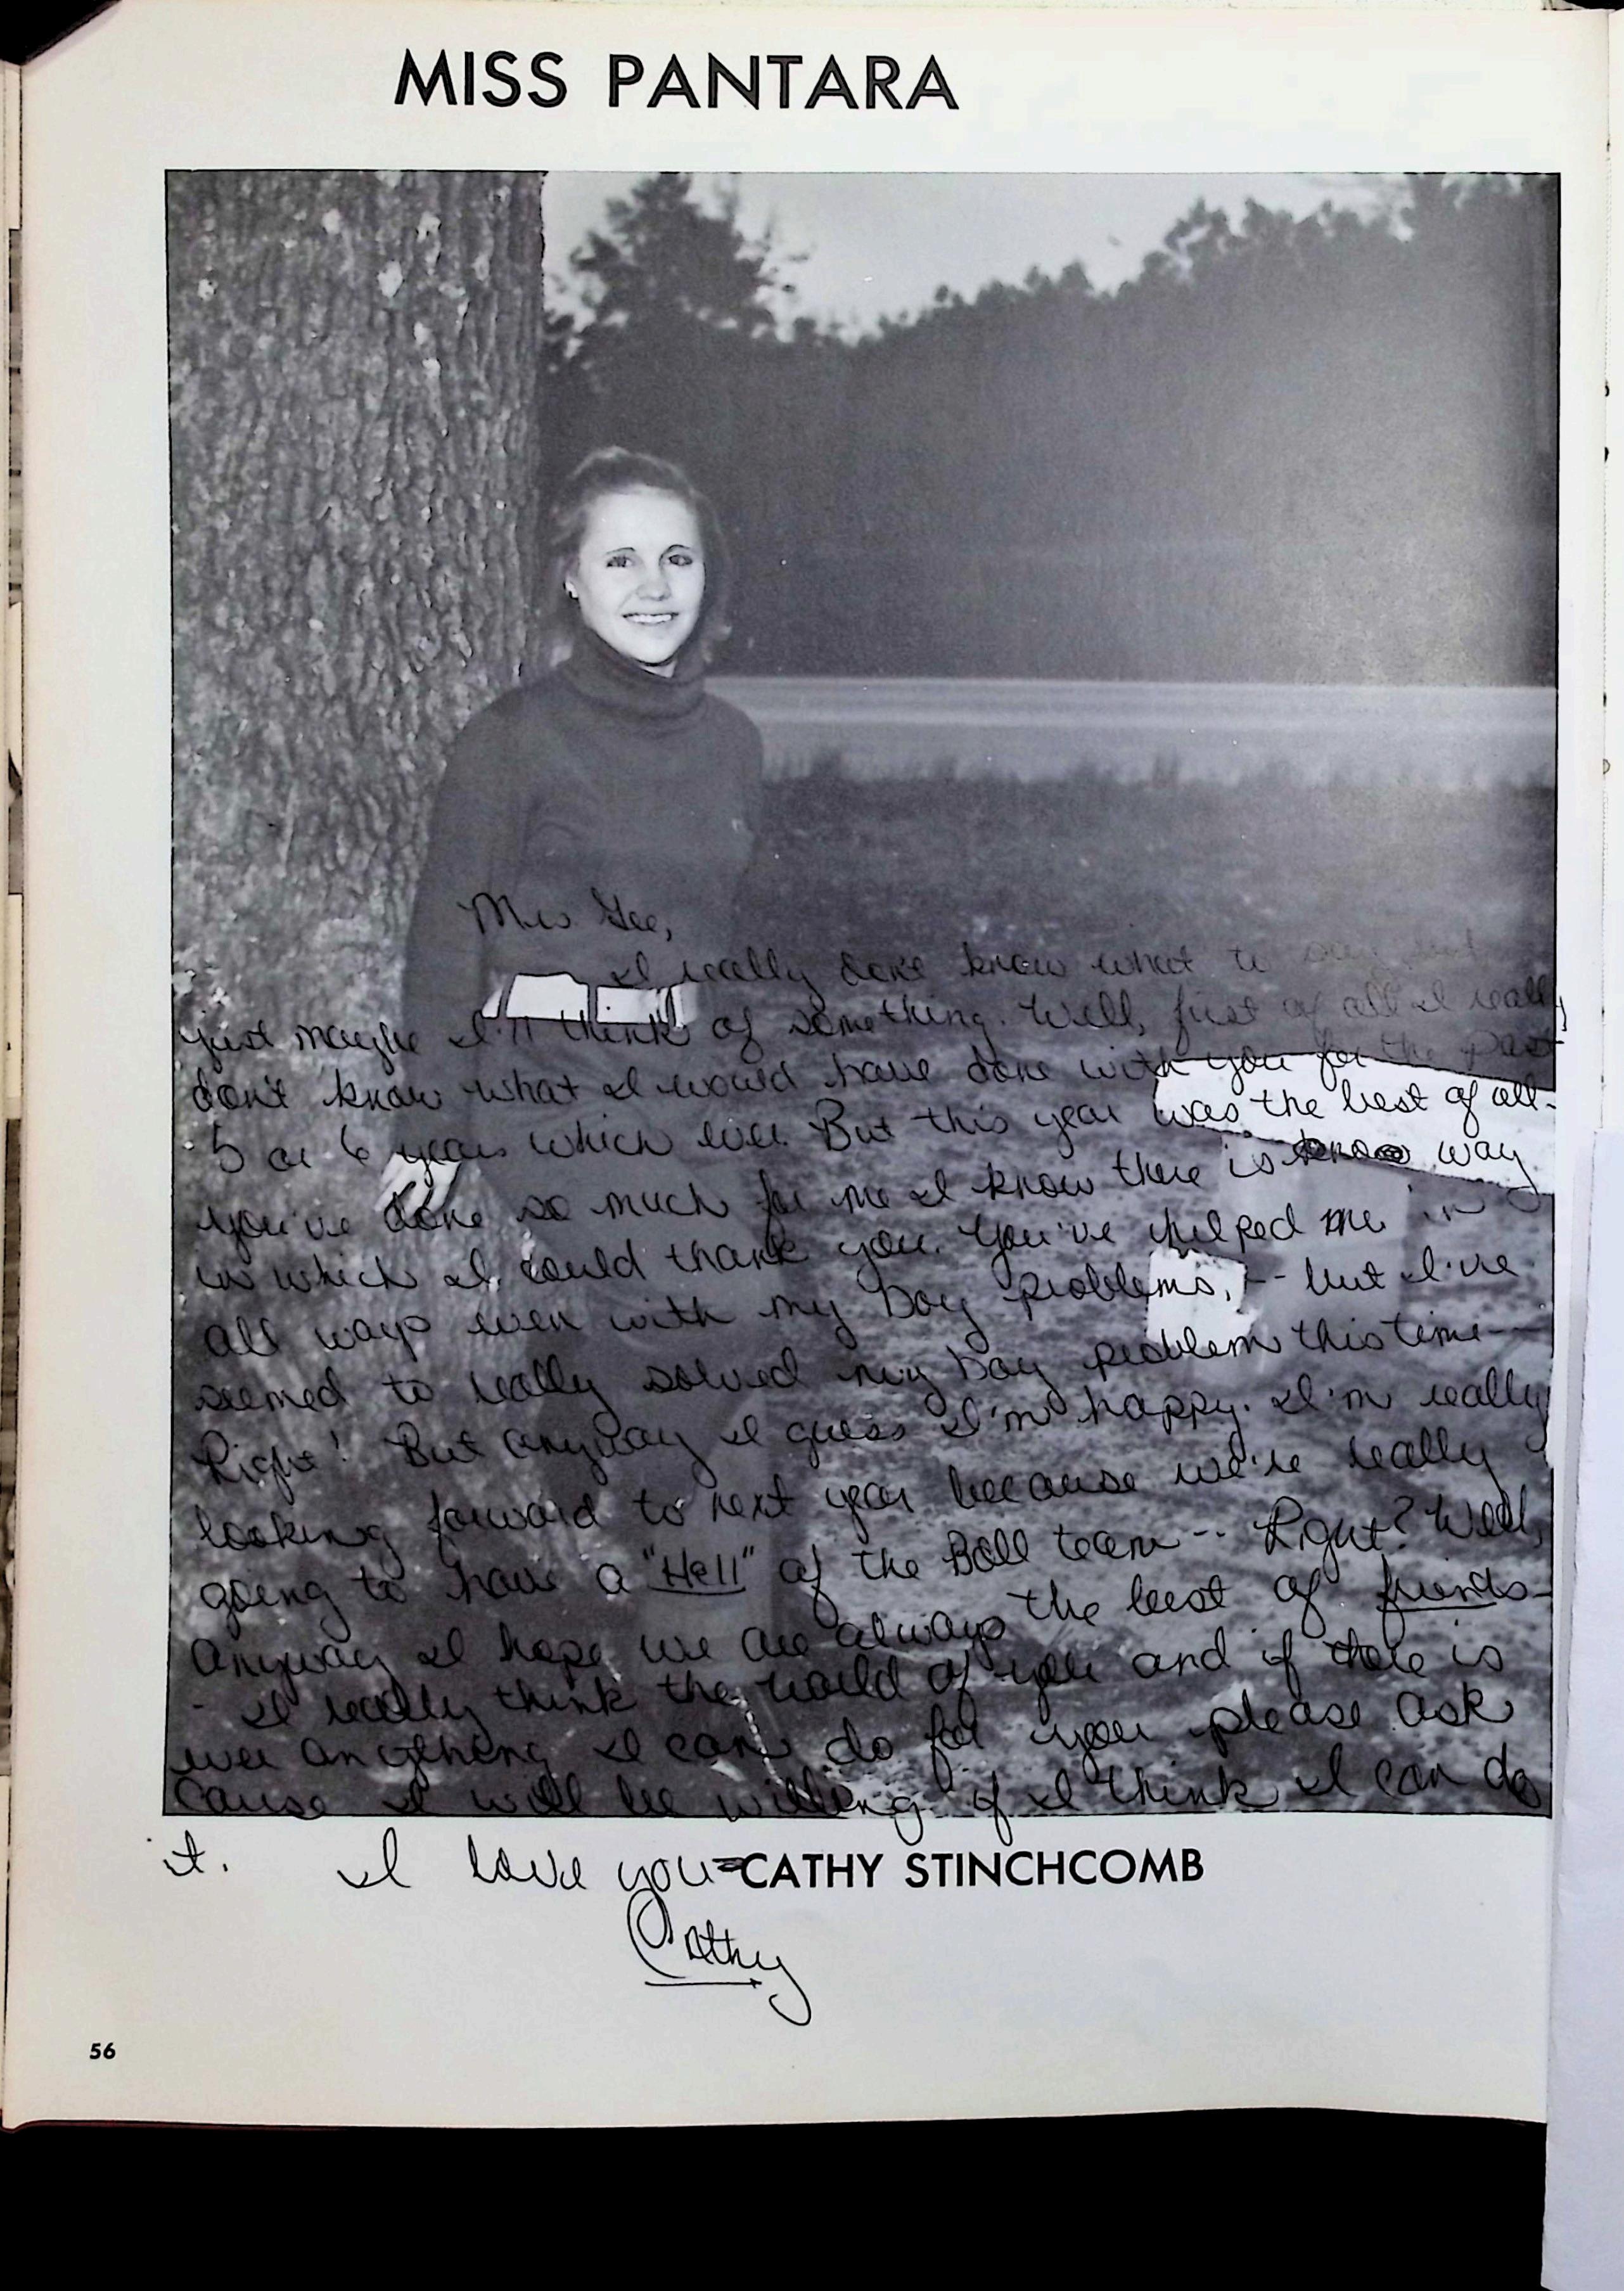 MISS PANTARA
I really don't know what to say but
just maybe I'll think of something. Well, first of all I really
don't know what I would have done with you for the past
5 or 6 years which ever. But this year was the best of all-
you've done so much for me I know there is way
in which I could thank you. You've helped me in
all ways even with my boy problems, -- but I've
seemed to really solved my boy problem this time--
Right! But anyway I guess I'm happy. I'm really
looking forward to next year because we're really
going to have a "Hell" of the Ball team -- Right? Well,
anyway I hope we are always the best of friends-
- I really think the world of you and if there is
ever anything I can do for you please ask
Cause I will be willing if I think I can do
it. I love you-
CATHY STINCHCOMB
Cathy
56